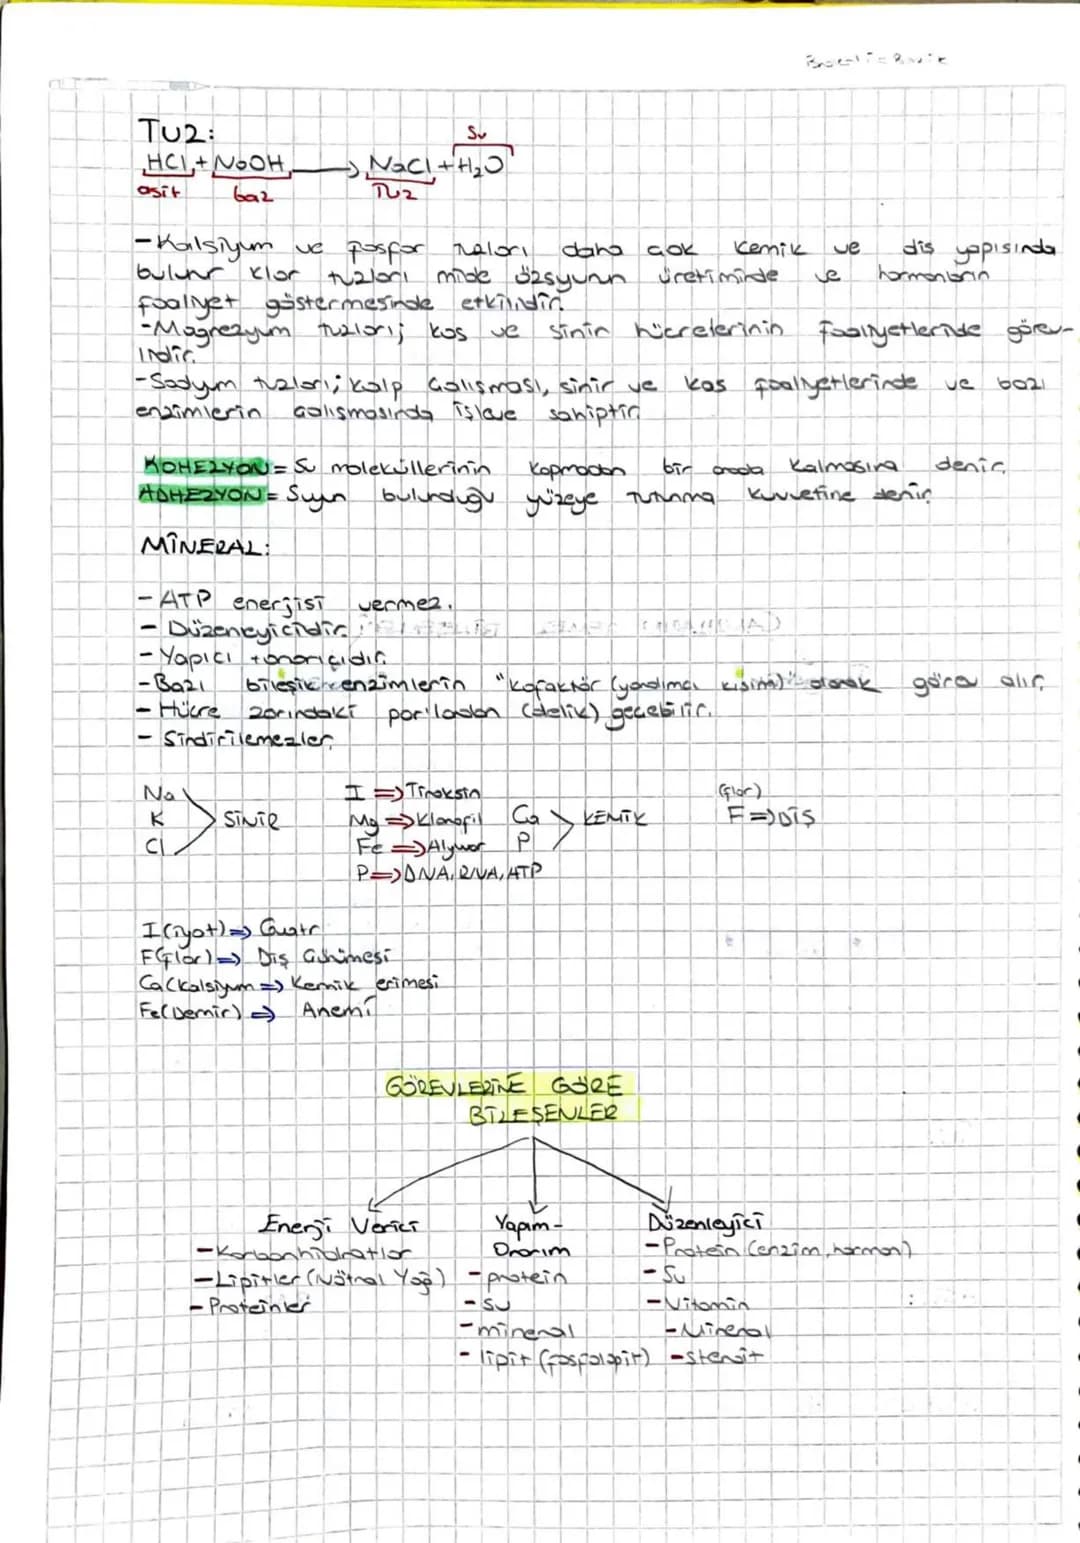 TUZ:
Su
HCl + NaOH → NaCl + H₂O
asit baz Tuz
- Kalsiyum ve fosfor tuzları daha çok kemik ve diş yapısında
bulunur klor tuzları mide özsuyunun üretiminde ve hormonların
faaliyet göstermesinde etkilidir.
- Magnezyum tuzları; kas ve sinir hücrelerinin faaliyetlerinde görev-
lidir.
- Sodyum tuzları; kalp çalışması, sinir ve kas faaliyetlerinde ve bazı
enzimlerin çalışmasında işleve sahiptir.
KOHEZYON = Su moleküllerinin kopmadan bir arada kalmasına denir.
ADHEZYON = Suyun bulunduğu yüzeye tutunma kuvvetine denir.
MİNERAL:
- ATP enerjisi vermez.
- Düzenleyicidir.
- Yapıcı onarıcıdır.
- Bazı bileşik enzimlerin "kofaktör (yardımcı kısım)" olarak görev alır.
- Hücre zarındaki por'lardan (delik) geçebilir.
- Sindirilemezler.
Na I ⇒ Tiroksin (flor)
K SİNİR Mg ⇒ Klorofil Ca KEMİK F ⇒ DİŞ
Cl Fe ⇒ Alyuvar P
P ⇒ DNA, RNA, ATP
I (iyot) ⇒ Guatr
F (flor) ⇒ Diş Çürümesi
Ca (kalsiyum ⇒ Kemik erimesi
Fe (Demir) ⇒ Anemi
GÖREVLERİNE GÖRE
BİLEŞENLER
Enerji Verici Yapım- Düzenleyici
- Karbonhidratlar Onarım - Protein (enzim, hormon)
- Lipitler (Nötral Yağ) - protein - Su
- Proteinler - su - Vitamin
- mineral - Mineral
- lipit (fosfolipit) - steroit